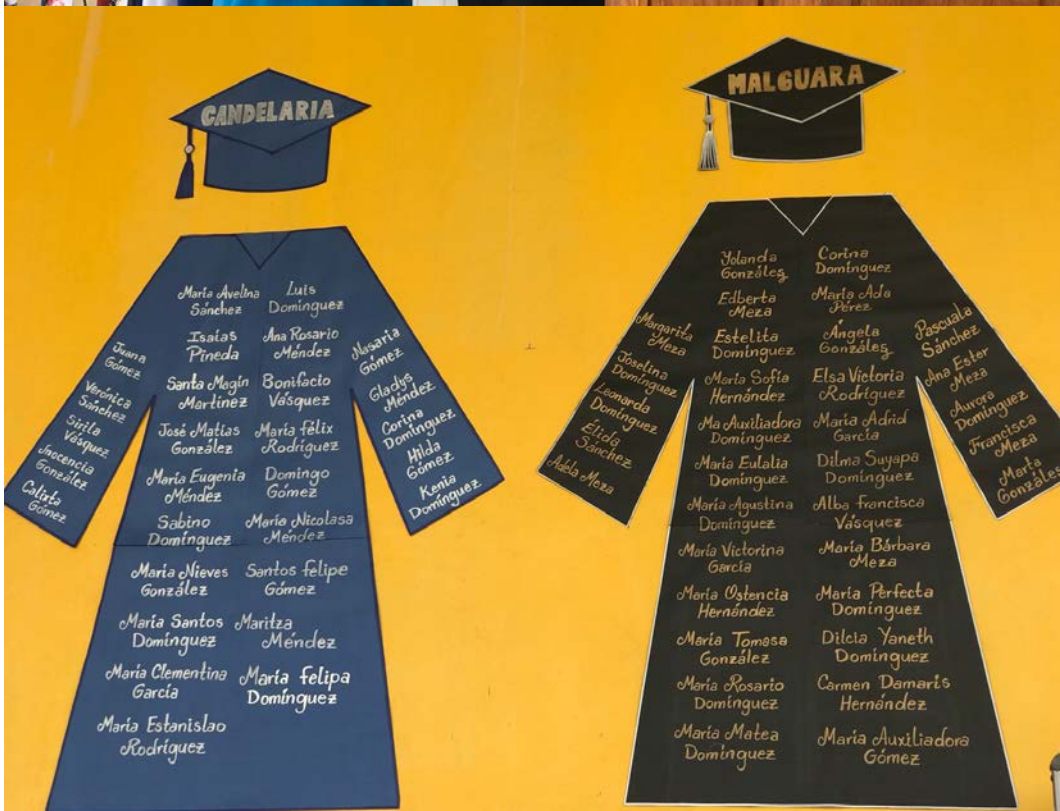 CANDELARIA
Juana
Gómez
Verónica
Sánchez
Sirila
Vásquez
Inocencia
González
Calixta
Gómez
María Avelina
Sánchez
Isaías
Pineda
Santa Magín
Martínez
José Matías
González
María Eugenia
Méndez
Sabino
Domínguez
María Nieves
González
María Santos
Domínguez
María Clementina
García
María Estanislao
Rodríguez
Luis
Domínguez
Ana Rosario
Méndez
Bonifacio
Vásquez
María félix
Rodríguez
Domingo
Gómez
María Nicolasa
Méndez
Santos felipe
Gómez
Maritza
Méndez
María felipa
Domínguez
Nasaria
Gómez
Gladys
Méndez
Corina
Domínguez
Hilda
Gómez
Kenia
Domínguez
MALGUARA
Margarita
Meza
Joselina
Domínguez
Leonarda
Domínguez
Élida
Sánchez
Adela Meza
Yolanda
González
Edberta
Meza
Estelita
Domínguez
María Sofía
Hernández
Ma Auxiliadora
Domínguez
María Eulalia
Domínguez
María Agustina
Domínguez
María Victorina
García
María Ostencia
Hernández
María Tomasa
González
María Rosario
Domínguez
María Matea
Domínguez
Corina
Domínguez
María Ada
Pérez
Ángela
González
Elsa Victoria
Rodríguez
María Adrid
García
Dilma Suyapa
Domínguez
Alba francisca
Vásquez
María Bárbara
Meza
María Perfecta
Domínguez
Dilcia Yaneth
Domínguez
Carmen Damaris
Hernández
María Auxiliadora
Gómez
Pascuala
Sánchez
Ana Ester
Meza
Aurora
Domínguez
Francisca
Meza
Marta
González